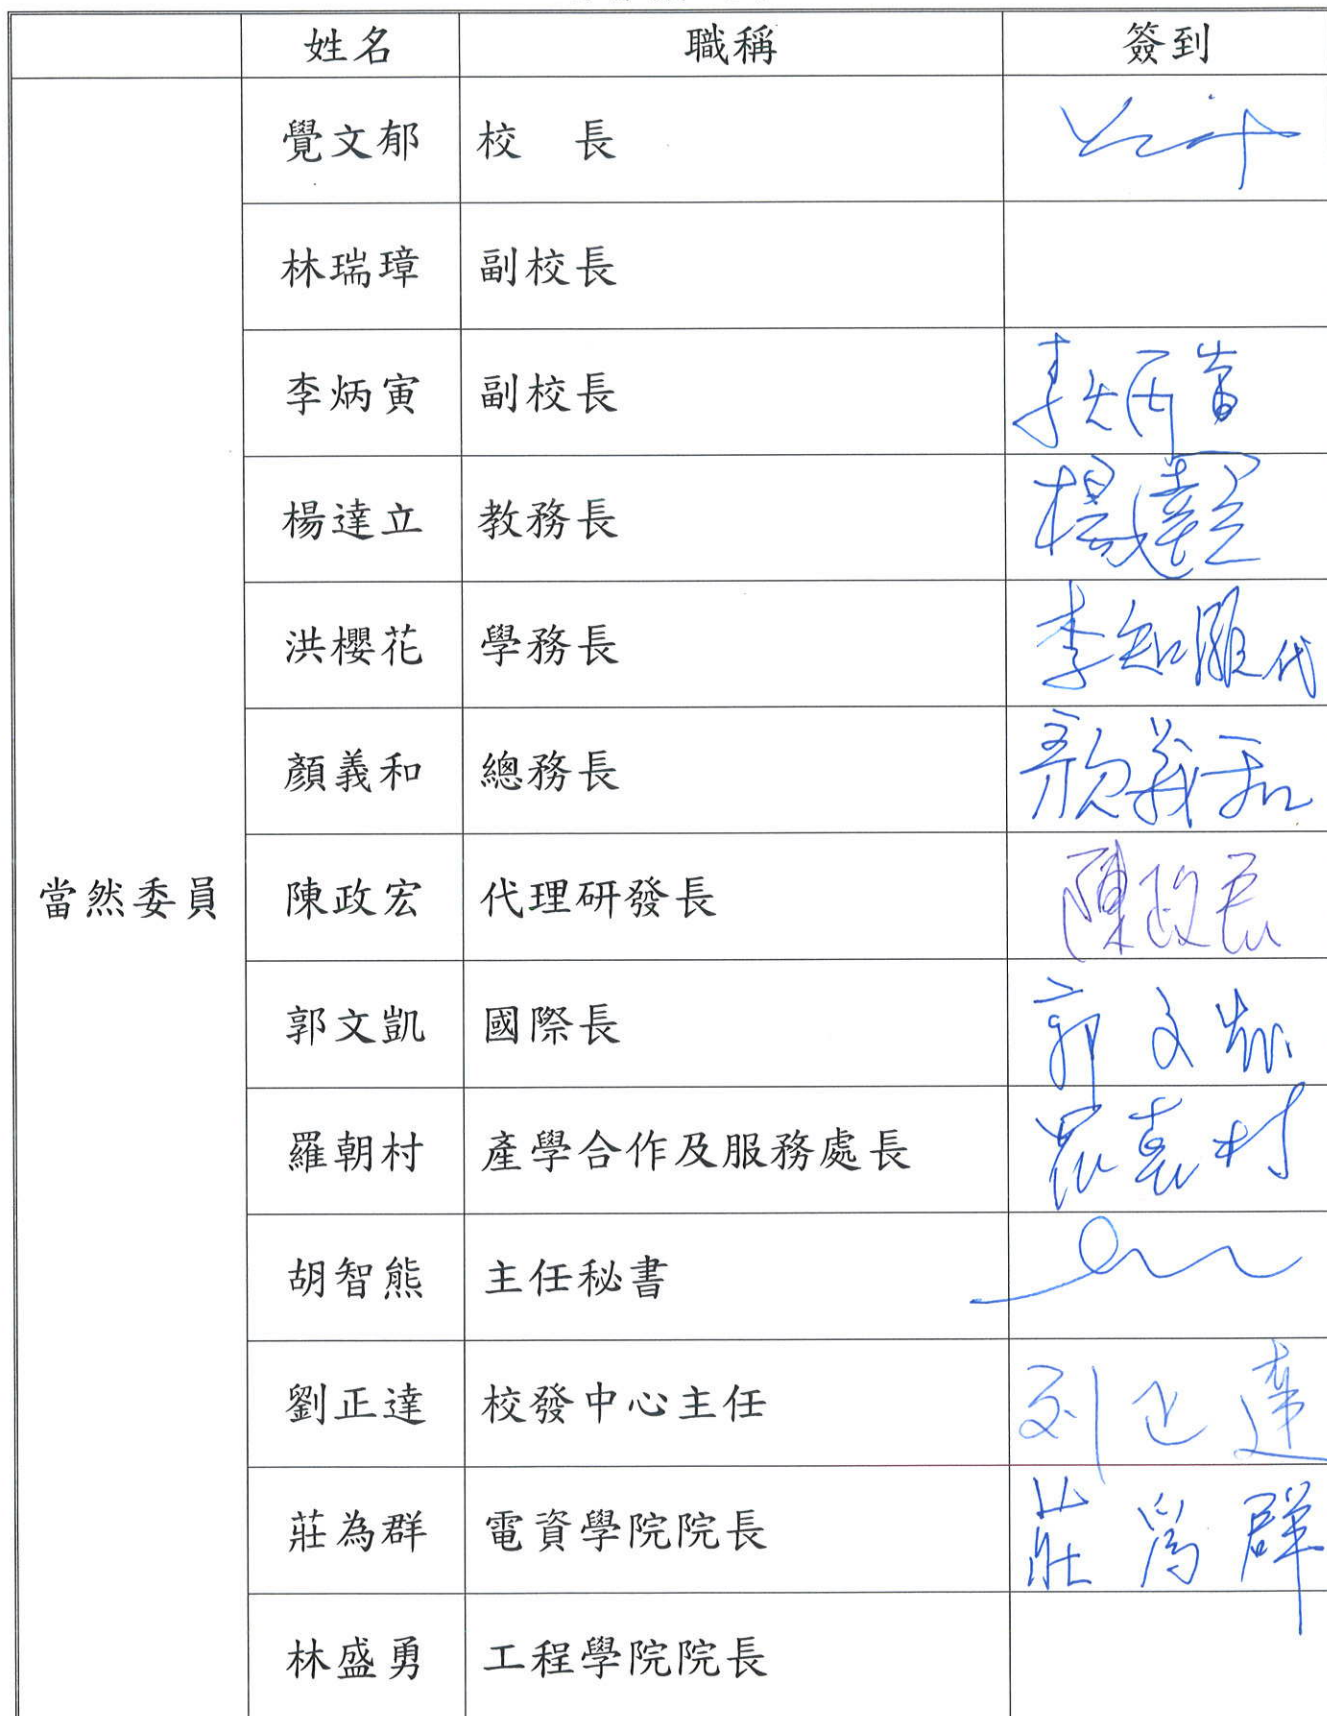 姓名 職稱 簽到
當然委員
覺文郁 校 長
林瑞璋 副校長
李炳寅 副校長 李炳寅
楊達立 教務長 楊達立
洪櫻花 學務長 李知 代
顏義和 總務長 顏義和
陳政宏 代理研發長 陳政宏
郭文凱 國際長 郭文凱
羅朝村 產學合作及服務處長 羅朝村
胡智熊 主任秘書
劉正達 校發中心主任 刘正達
莊為群 電資學院院長 莊為群
林盛勇 工程學院院長